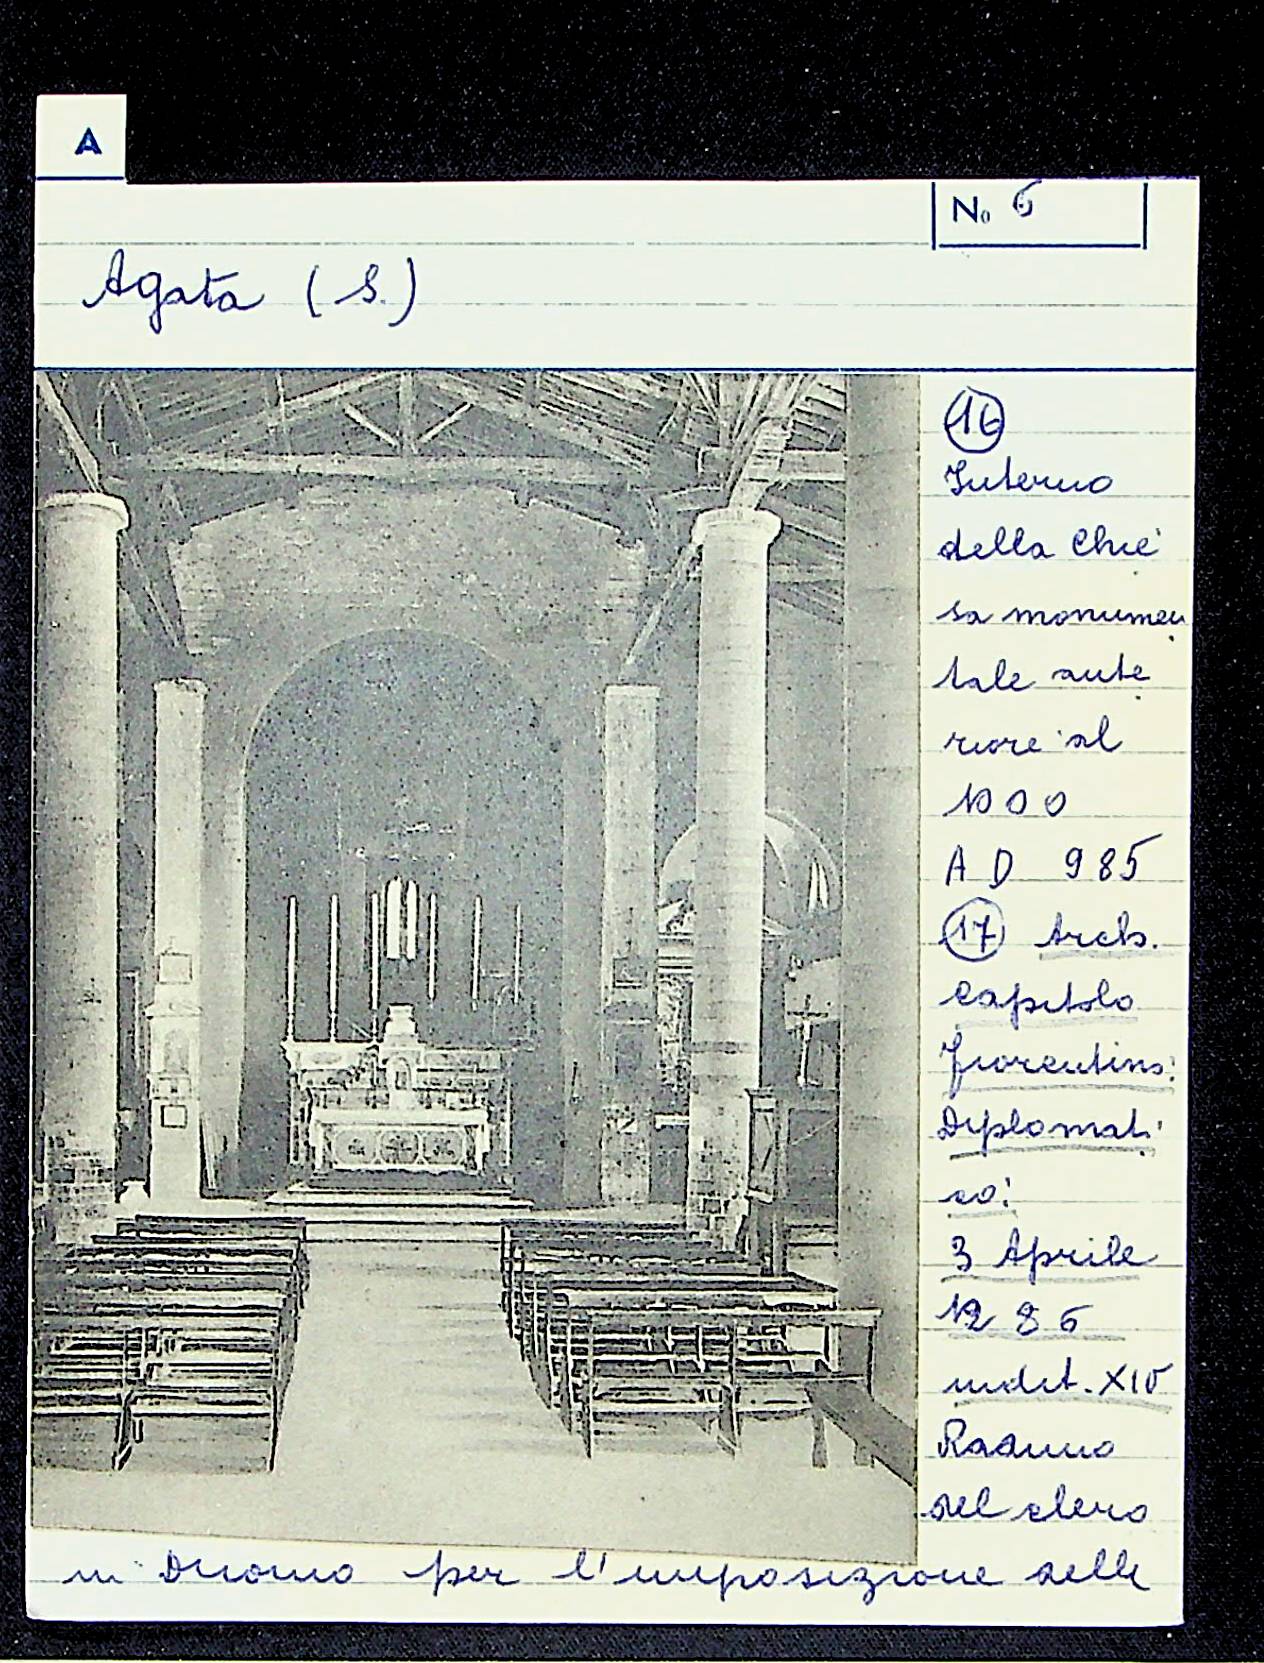 A
No 6
Agata (S.)
16
Interno
della Chie
sa monumen
tale ante
riore al
1000
AD 985
17 Arch.
Capitolo
Fiorentino:
Diplomati
co:
3 Aprile
1286
indit. XIV
Raduno
del clero
in Duomo per l'imposizione delle